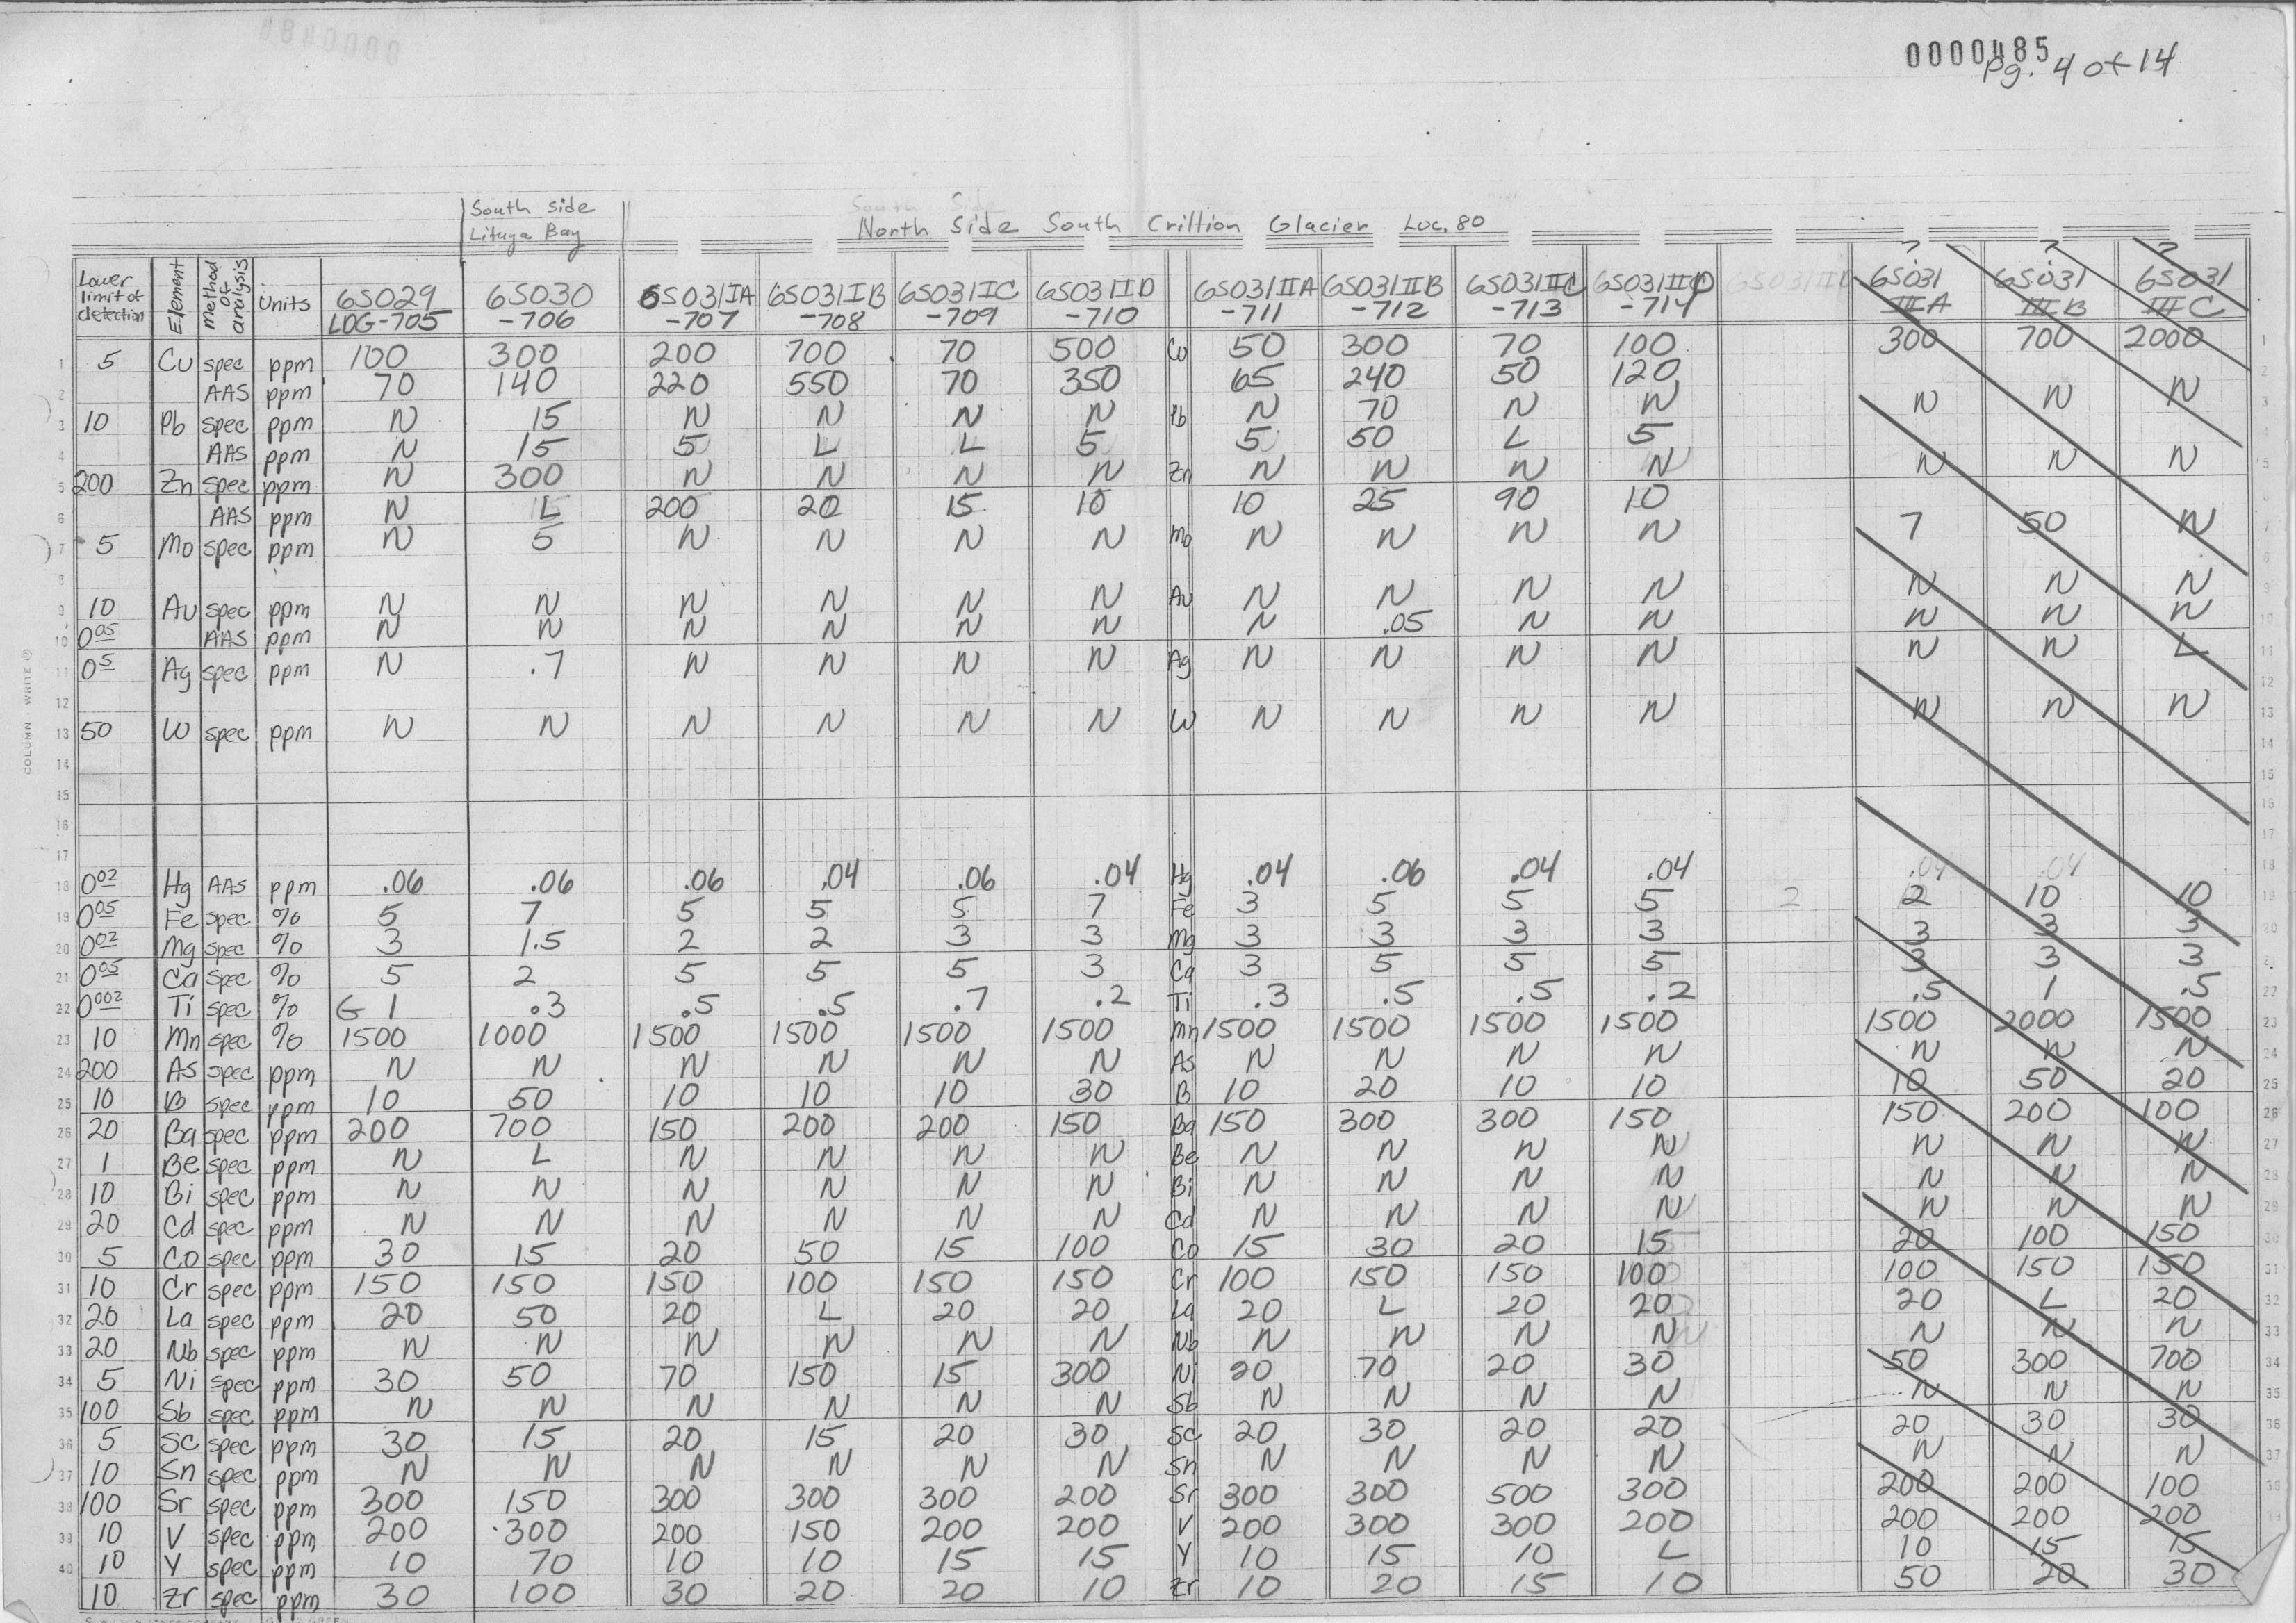 0000485
pg. 4 of 14
South side
Lituya Bay
North Side South Crillion Glacier Loc. 80
Lower limit of detection | Element | Method of analysis | Units | 6S029 LDG-705 | 6S030 -706 | 6S031IA -707 | 6S031IB -708 | 6S031IC -709 | 6S031ID -710 | | 6S031IIA -711 | 6S031IIB -712 | 6S031IIC -713 | 6S031IID -714 | ? 6S031 IIIA | ? 6S031 IIIB | ? 6S031 IIIC
1 5 Cu spec ppm 100 300 200 700 70 500 Cu 50 300 70 100 300 700 2000 1
2 AAS ppm 70 140 220 550 70 350 65 240 50 120 2
3 10 Pb spec ppm N 15 N N N N Pb N 70 N N N N N 3
4 AAS ppm N 15 5 L L 5 5 50 L 5
5 200 Zn spec ppm N 300 N N N N Zn N N N N N N N 5
6 AAS ppm N L 200 20 15 10 10 25 90 10
7 5 Mo spec ppm N 5 N N N N Mo N N N N 7 50 N 7
8
9 10 Au spec ppm N N N N N N Au N N N N N N N 9
10 0.05 AAS ppm N N N N N N N .05 N N N N N 10
11 0.5 Ag spec ppm N .7 N N N N Ag N N N N N N L 11
12 12
13 50 W spec ppm N N N N N N W N N N N N N N 13
14 14
15 15
16 16
17 17
18 0.02 Hg AAS ppm .06 .06 .06 .04 .06 .04 Hg .04 .06 .04 .04 .04 .04 18
19 0.05 Fe spec % 5 7 5 5 5 7 Fe 3 5 5 5 2 2 10 10 19
20 0.02 Mg spec % 3 1.5 2 2 3 3 Mg 3 3 3 3 3 3 3 20
21 0.05 Ca spec % 5 2 5 5 5 3 Ca 3 5 5 5 3 3 3 21
22 0.002 Ti spec % G 1 .3 .5 .5 .7 .2 Ti .3 .5 .5 .2 .5 1 .5 22
23 10 Mn spec % 1500 1000 1500 1500 1500 1500 Mn 1500 1500 1500 1500 1500 2000 1500 23
24 200 As spec ppm N N N N N N As N N N N N N N 24
25 10 B spec ppm 10 50 10 10 10 30 B 10 20 10 10 10 50 20 25
26 20 Ba spec ppm 200 700 150 200 200 150 Ba 150 300 300 150 150 200 100 26
27 1 Be spec ppm N L N N N N Be N N N N N N N 27
28 10 Bi spec ppm N N N N N N Bi N N N N N N N 28
29 20 Cd spec ppm N N N N N N Cd N N N N N N N 29
30 5 Co spec ppm 30 15 20 50 15 100 Co 15 30 20 15 20 100 150 30
31 10 Cr spec ppm 150 150 150 100 150 150 Cr 100 150 150 100 100 150 150 31
32 20 La spec ppm 20 50 20 L 20 20 La 20 L 20 20 20 L 20 32
33 20 Nb spec ppm N N N N N N Nb N N N N N N N 33
34 5 Ni spec ppm 30 50 70 150 15 300 Ni 20 70 20 30 50 300 700 34
35 100 Sb spec ppm N N N N N N Sb N N N N N N N 35
36 5 Sc spec ppm 30 15 20 15 20 30 Sc 20 30 20 20 20 30 30 36
37 10 Sn spec ppm N N N N N N Sn N N N N N N N 37
38 100 Sr spec ppm 300 150 300 300 300 200 Sr 300 300 500 300 200 200 100 38
39 10 V spec ppm 200 300 200 150 200 200 V 200 300 300 200 200 200 200
40 10 Y spec ppm 10 70 10 10 15 15 Y 10 15 10 L 10 15 15
10 Zr spec ppm 30 100 30 20 20 10 Zr 10 20 15 10 50 20 30
COLUMN - WRITE ®